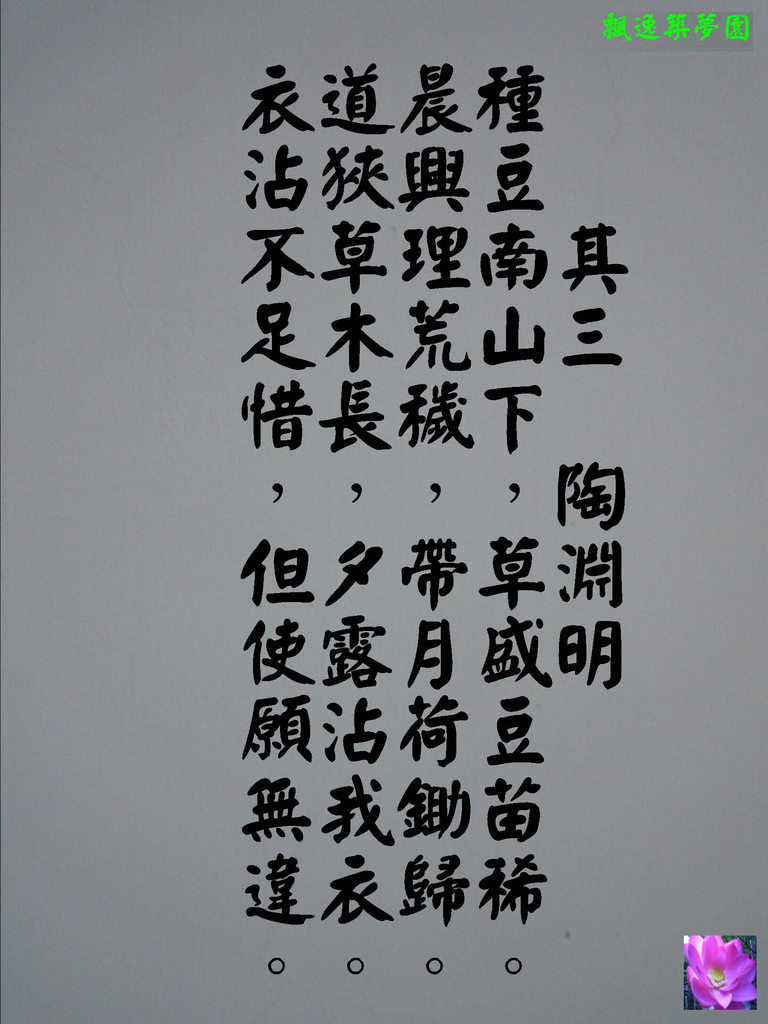 飄逸築夢園
其三 陶淵明
種豆南山下，草盛豆苗稀。
晨興理荒穢，帶月荷鋤歸。
道狹草木長，夕露沾我衣。
衣沾不足惜，但使願無違。